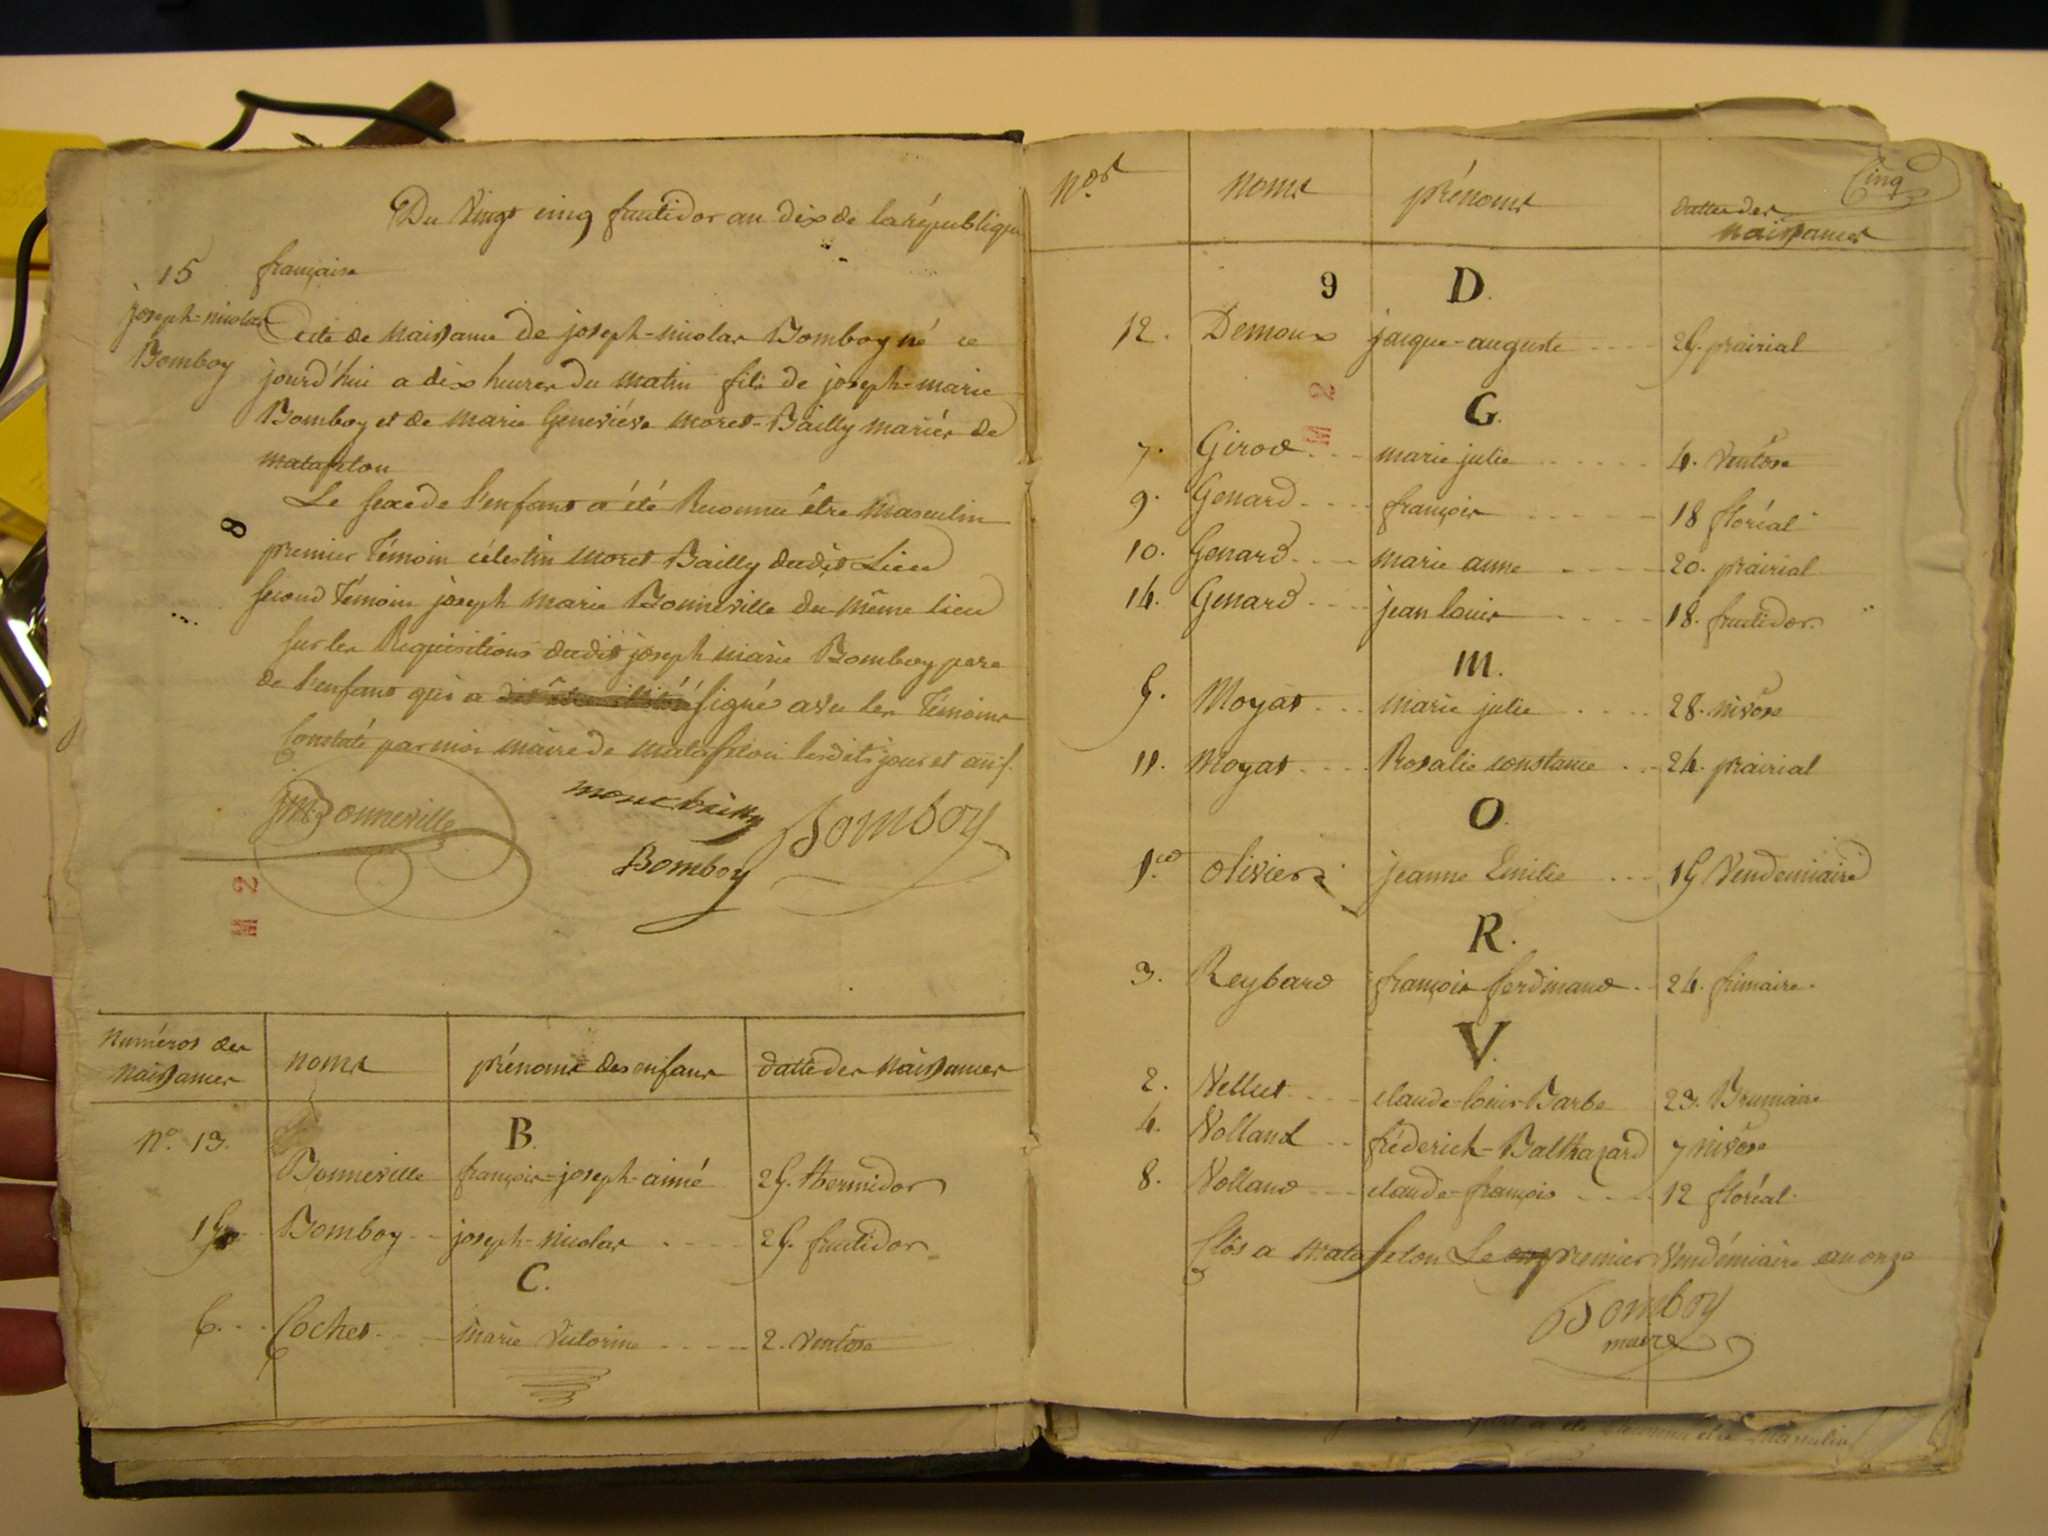 Du Vingt cinq fructidor an dix de la république
15 française
joseph-nicolas Bomboy
Acte de Naissance de joseph-nicolas Bomboy né ce
jourd'hui a dix heures du matin fils de joseph-marie
Bomboy et de marie Geneviéve moret-Bailly mariés de
matafelon
Le sexe de l'enfant a été Reconnu être masculin
8
premier Témoin célestin moret Bailly dudit Lieu
second Témoin joseph marie Bonneville du même lieu
sur les Requisitions dudit joseph marie Bomboy pere
de l'enfant qui a signé avec les Témoins
Constaté par moi maire de matafelon lesdits jour et an
JM Bonneville moret bailly Bomboy
Bomboy
M 2
Numéros des Naissances noms prénoms des enfans datte des Naissances
B.
n.º 13. Bonneville françois-joseph-aimé 25. thermidor
15 Bomboy joseph-nicolas 25. fructidor
C.
6. Cochet marie Victorine 2. Ventôse
Cinq
N.os noms prénoms dattes des Naissances
9 D.
12. Demoux jacque-auguste 25. prairial
M 2
G.
7. Girod marie julie 4. Ventôse
9. Genard françois 18 floréal
10. Genard marie anne 20. prairial
14. Genard jean louis 18. fructidor
M.
5. Moyat marie julie 28. nivôse
11. Moyat Rosalie constance 24. prairial
O.
1.er Olivier jeanne Emilie 15 Vendemiaire
R.
3. Reybard françois ferdinand 24. frimaire
V.
2. Vellut claude-louis-Barbe 23. Brumaire
4. Volland fréderich-Balthazard 7 nivôse
8. Volland claude-françois 12 floréal
Clos a matafelon Le premier Vendémiaire an onze
Bomboy
maire